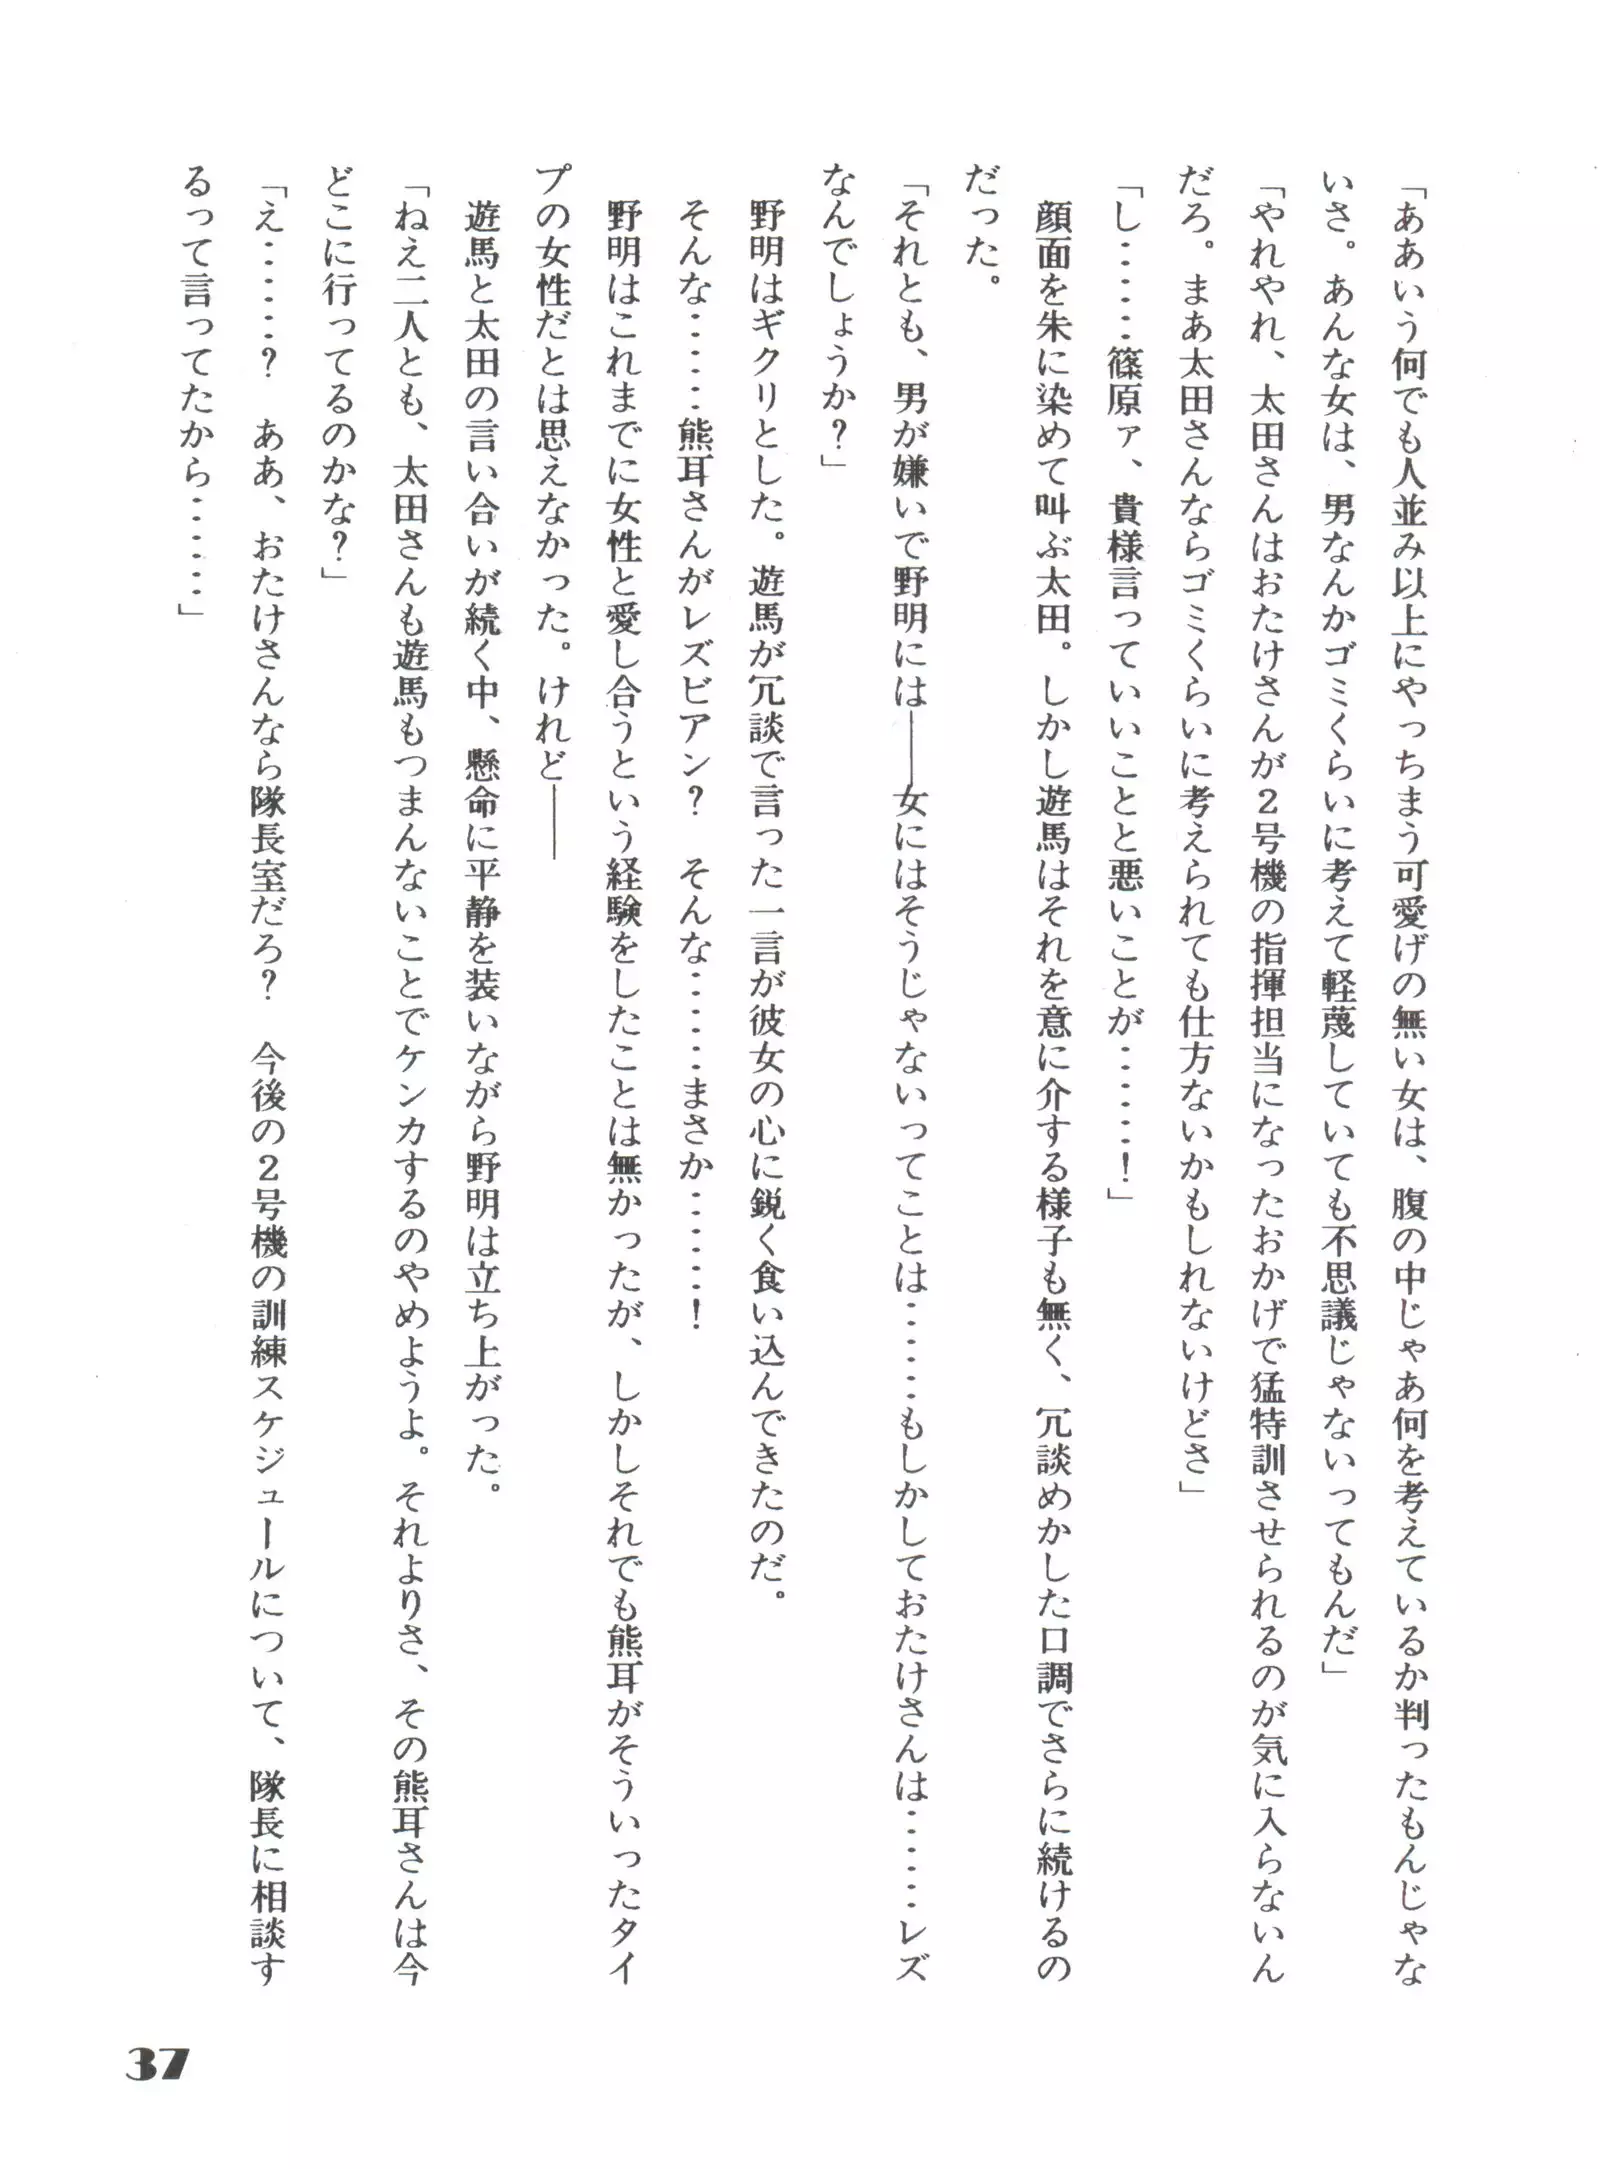 「ああいう何でも人並み以上にやっちまう可愛げの無い女は、腹の中じゃあ何を考えているか判ったもんじゃな
いさ。あんな女は、男なんかゴミくらいに考えて軽蔑していても不思議じゃないってもんだ」
「やれやれ、太田さんはおたけさんが２号機の指揮担当になったおかげで猛特訓させられるのが気に入らないん
だろ。まあ太田さんならゴミくらいに考えられても仕方ないかもしれないけどさ」
「し‥‥‥篠原ァ、貴様言っていいことと悪いことが‥‥‥！」
　顔面を朱に染めて叫ぶ太田。しかし遊馬はそれを意に介する様子も無く、冗談めかした口調でさらに続けるの
だった。
「それとも、男が嫌いで野明には――女にはそうじゃないってことは‥‥‥もしかしておたけさんは‥‥‥レズ
なんでしょうか？」
　野明はギクリとした。遊馬が冗談で言った一言が彼女の心に鋭く食い込んできたのだ。
　そんな‥‥‥熊耳さんがレズビアン？　そんな‥‥‥まさか‥‥‥！
　野明はこれまでに女性と愛し合うという経験をしたことは無かったが、しかしそれでも熊耳がそういったタイ
プの女性だとは思えなかった。けれど――
　遊馬と太田の言い合いが続く中、懸命に平静を装いながら野明は立ち上がった。
「ねえ二人とも、太田さんも遊馬もつまんないことでケンカするのやめようよ。それよりさ、その熊耳さんは今
どこに行ってるのかな？」
「え‥‥‥？　ああ、おたけさんなら隊長室だろ？　今後の２号機の訓練スケジュールについて、隊長に相談す
るって言ってたから‥‥‥」
37